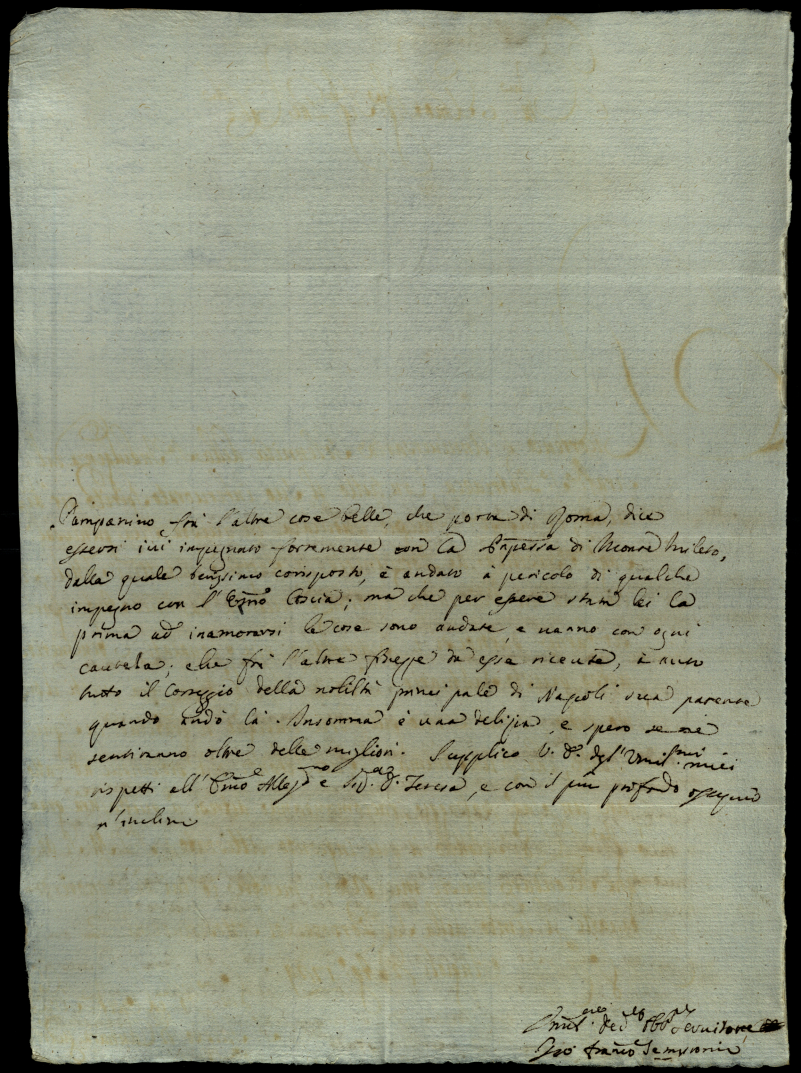 Pampanino frà l'altre cose belle, che porta di Roma, dice
essersi ivi impegnato fortemente con la Pnpessa di Monte Mileto,
dalla quale benissimo corrisposto, è andato à pericolo di qualche
impegno con l'Emo Coscia; ma che per essere stata lei la
prima ad inamorarsi le cose sono andate, e vanno con ogni
cautela; che frà l'altre finezze da essa ricevute, è
tutto il Corteggio della nobiltà principale di Napoli sua parente
quando andò là. Insomma è una delizia, e spero
sentiranno oltre delle migliori. Supplico V. E. degl'Umil.mi miei
rispetti all' e Sig.ra D. Teresa, e con il più profondo ossequio
m'inclino
Umil. Dev. Obb. Servitore
Gio Franco